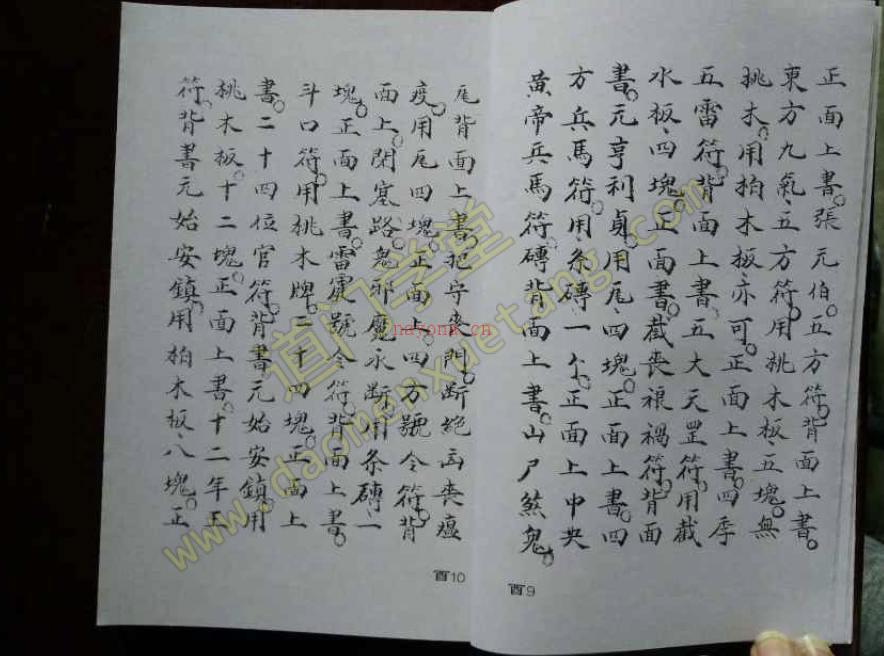 正面上書。張元伯。五方符。背面上書。
東方九氣、五方符。用桃木板五塊。無
桃木。用柏木板、亦可。正面上書。四季
五雷符。背面上書。五大天罡符。用截
水板、四塊。正面書。截喪禳禍符。背面
書。元亨利貞。用瓦、四塊。正面上書。四
方兵馬符。用条磚、一个。正面上中央
黃帝兵馬符。磚背面上書。山尸煞鬼。
百9
瓦背面上書。把守喪門。断絶凶喪瘟
疫。用瓦四塊。正面上。四方號令符。背
面上。閉塞路。鬼邪魔永断。用条磚、一
塊。正面上書。雷霆號令符。背面上書。
斗口符。用桃木牌。二十四塊。正面上
書。二十四位官符。背書元始安鎮。用
桃木板。十二塊。正面上書。十二年王
符。背書元始安鎮。用柏木板、八塊。正
百10
道门学堂
www.daomenxuetang.com
nayona.cn